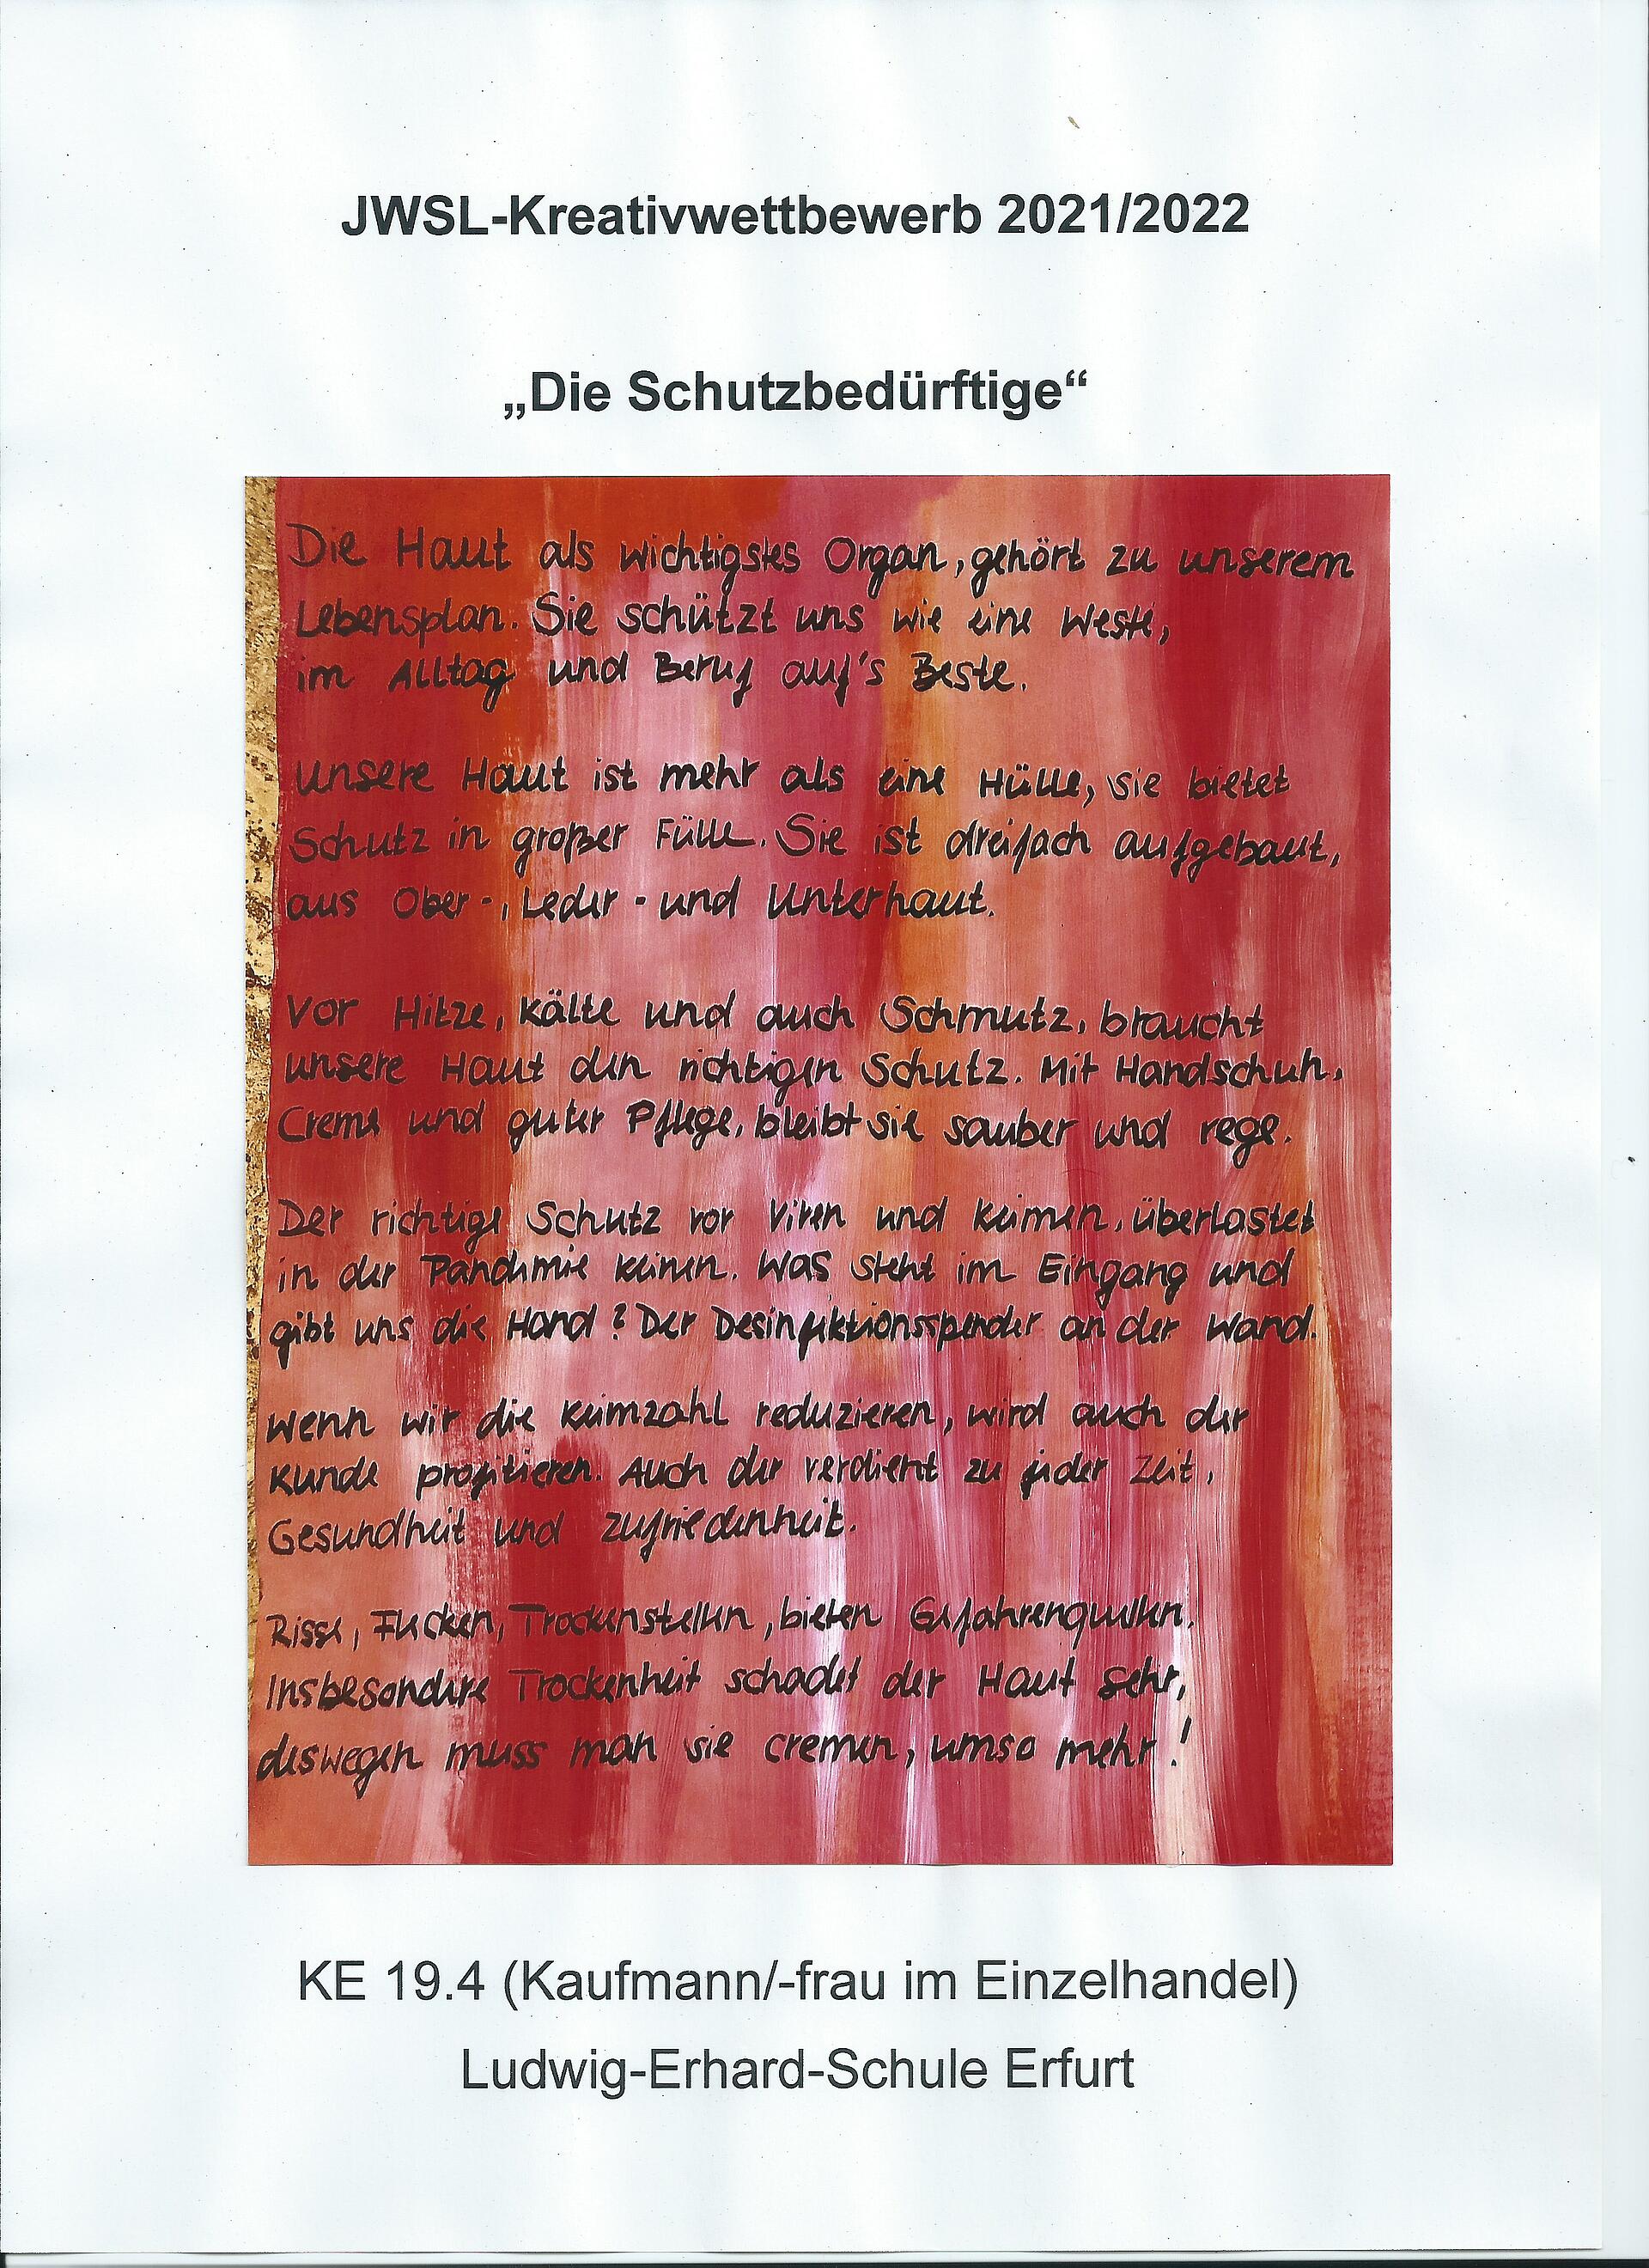 JWSL-Kreativwettbewerb 2021/2022
„Die Schutzbedürftige“
Die Haut als wichtigstes Organ, gehört zu unserem
Lebensplan. Sie schützt uns wie eine Weste,
im Alltag und Beruf auf's Beste.
Unsere Haut ist mehr als eine Hülle, sie bietet
Schutz in großer Fülle. Sie ist dreifach aufgebaut,
aus Ober-, Leder- und Unterhaut.
Vor Hitze, Kälte und auch Schmutz, braucht
unsere Haut den richtigen Schutz. Mit Handschuh,
Creme und guter Pflege, bleibt sie sauber und rege.
Der richtige Schutz vor Viren und Keimen, überlastet
in der Pandemie keinen. Was steht im Eingang und
gibt uns die Hand? Der Desinfektionsspender an der Wand.
Wenn wir die Keimzahl reduzieren, wird auch der
Kunde profitieren. Auch der verdient zu jeder Zeit,
Gesundheit und Zufriedenheit.
Risse, Flecken, Trockenstellen, bieten Gefahrenquellen.
Insbesondere Trockenheit schadet der Haut sehr,
deswegen muss man sie cremen, umso mehr!
KE 19.4 (Kaufmann/-frau im Einzelhandel)
Ludwig-Erhard-Schule Erfurt